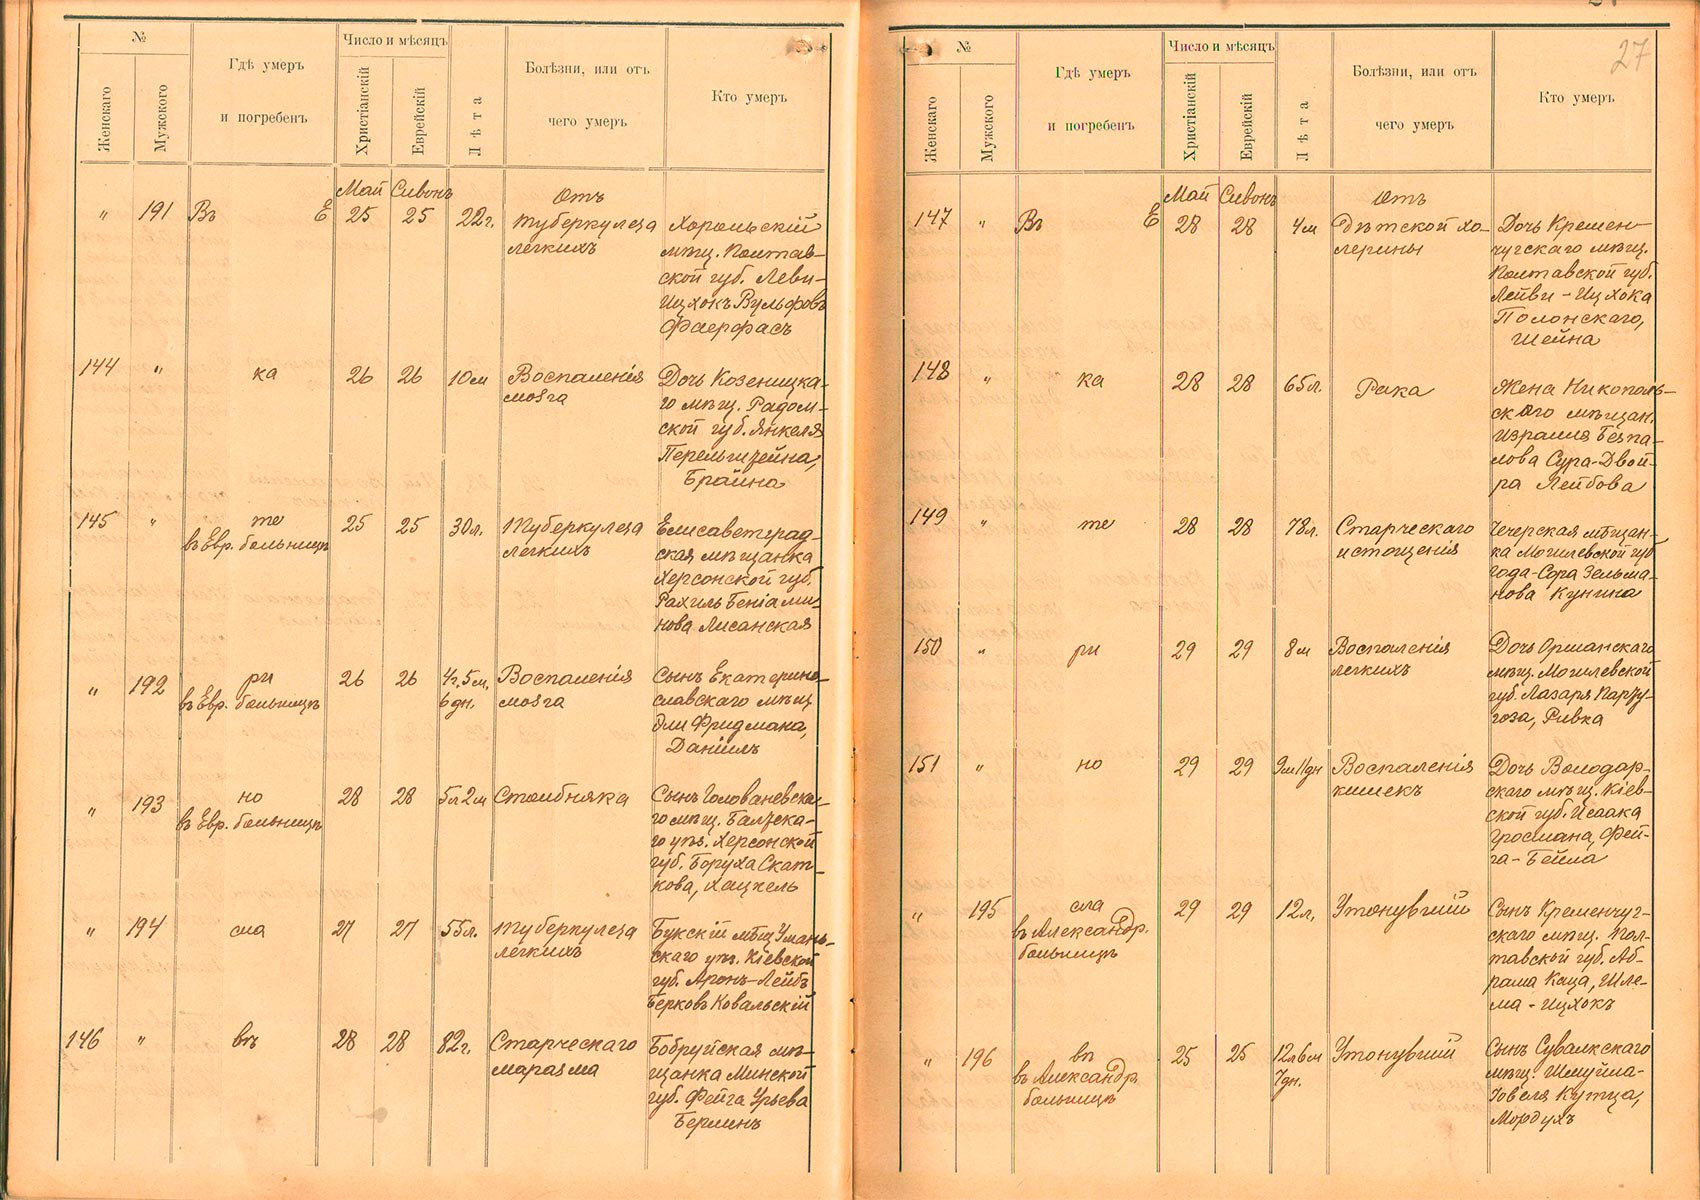 №
Женскаго
Мужского
Гдѣ умеръ
и погребенъ
Число и мѣсяцъ
Христіанскій
Еврейскій
Лѣта
Болѣзни, или отъ
чего умеръ
Кто умеръ
Май Сивонъ
" 191 Въ Е 25 25 22г.
Отъ
туберкулеза
легкихъ
Хорольскій
мѣщ. Полтав-
ской губ. Леви-
Ицхокъ Вульфовъ
Фаерфасъ
144 " ка 26 26 10м
Воспаленія
мозга
Дочь Козеницка-
го мѣщ. Радом-
ской губ. Янкеля
Перельштейна,
Брайна
145 " те 25 25 30л.
въ Евр. больницѣ
Туберкулеза
легкихъ
Елисаветград-
ская мѣщанка
Херсонской губ.
Рахиль Беніами-
нова Лисанская
" 192 ри 26 26 4г. 5м.
въ Евр. больницѣ 6 дн.
Воспаленія
мозга
Сынъ Екатерино-
славскаго мѣщ
Эли Фридмана,
Даніилъ
" 193 но 28 28 5л 2м
въ Евр. больницѣ
Столбняка
Сынъ Голованевска-
го мѣщ. Балтска-
го уѣз. Херсонской
губ. Боруха Скат-
кова, Хацкель
" 194 сла 27 27 55л.
Туберкулеза
легкихъ
Букскій мѣщ Умань-
скаго уѣз. Кіевской
губ. Аронъ-Лейбъ
Берковъ Ковальскій
146 " въ 28 28 82г.
Старческаго
маразма
Бобруйская мѣ-
щанка Минской
губ. Фейга Урьева
Берлинъ
27
№
Женскаго
Мужского
Гдѣ умеръ
и погребенъ
Число и мѣсяцъ
Христіанскій
Еврейскій
Лѣта
Болѣзни, или отъ
чего умеръ
Кто умеръ
Май Сивонъ
147 " Въ Е 28 28 4м
Отъ
Дѣтской хо-
лерины
Дочь Кремен-
чугскаго мѣщ.
Полтавской губ.
Лейви-Ицхока
Полонскаго,
Шейна
148 " ка 28 28 65л.
Рака
Жена Никополь-
скаго мѣщан.
Израиля Безпа-
лова Сура-Двой-
ра Лейбова
149 " те 28 28 78л.
Старческаго
истощенія
Чечерская мѣщан-
ка Могилевской губ
Года-Сора Зельма-
нова Кунина
150 " ри 29 29 8м
Воспаленія
легкихъ
Дочь Оршанскаго
мѣщ. Могилевской
губ. Лазаря Парту-
гоза, Ривка
151 " но 29 29 9м 11дн
Воспаленія
кишекъ
Дочь Володар-
скаго мѣщ. Кіев-
ской губ. Исаака
Гросмана, Фей-
га-Бейла
" 195 сла 29 29 12л.
въ Александр.
больницѣ
Утонувшій
Сынъ Кременчуг-
скаго мѣщ. Пол-
тавской губ. Аб-
рама Каца, Шле-
ма-Ицхокъ
" 196 въ 25 25 12л 6м
въ Александр. 7дн.
больницѣ
Утонувшій
Сынъ Сувалкскаго
мѣщ. Шмуйла-
Іовеля Кутца,
Мордухъ